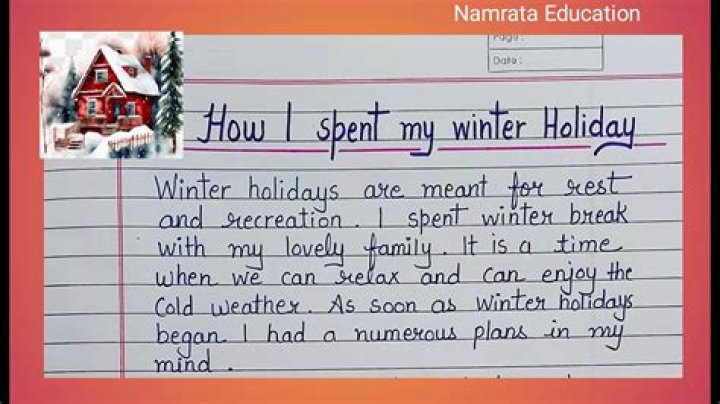 Namrata Education
Page:
Date:
How I spent my winter Holiday
Winter holidays are meant for rest
and recreation. I spent winter break
with my lovely family. It is a time
when we can relax and can enjoy the
Cold weather. As soon as winter holidays
began I had a numerous plans in my
mind.